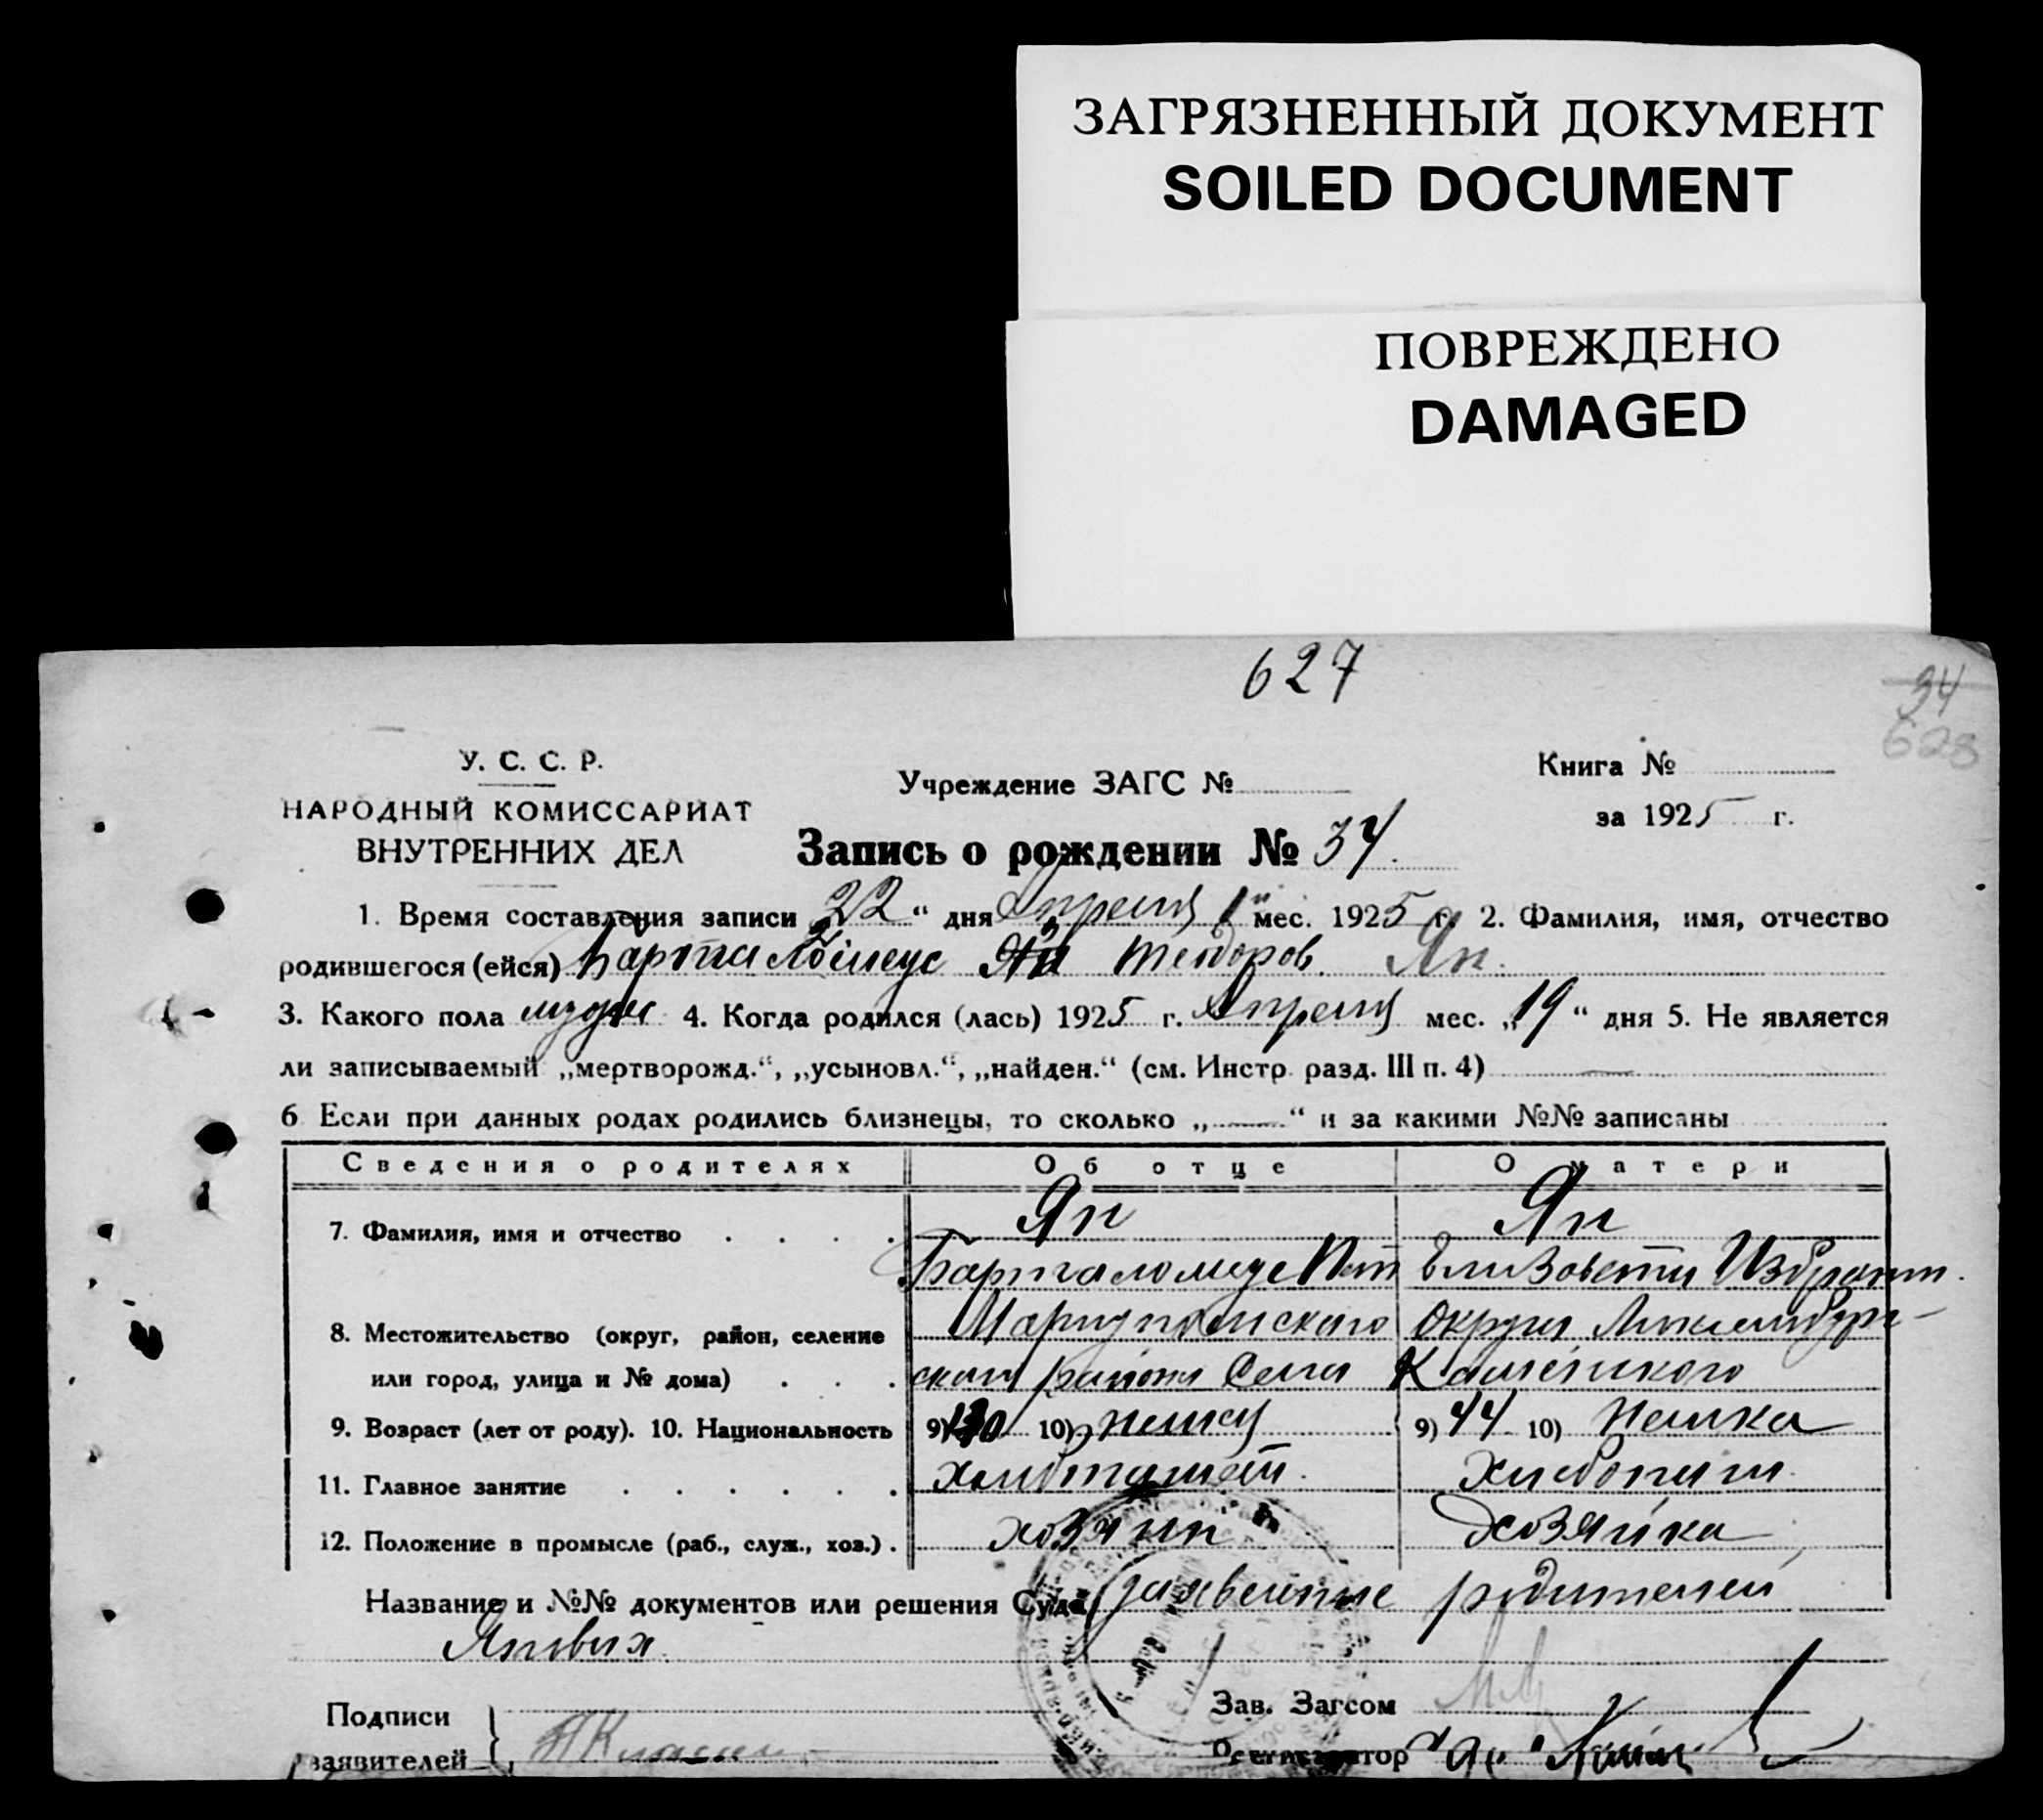 ЗАГРЯЗНЕННЫЙ ДОКУМЕНТ
SOILED DOCUMENT
ПОВРЕЖДЕНО
DAMAGED
627
34
628
У. С. С. Р.
НАРОДНЫЙ КОМИССАРИАТ
ВНУТРЕННИХ ДЕЛ
Учреждение ЗАГС №
Книга №
за 1925 г.
Запись о рождении № 34
1. Время составления записи 22 “ дня Апреля мес. 1925 г. 2. Фамилия, имя, отчество
родившегося (ейся) Ян Теодоров. Ян.
3. Какого пола 4. Когда родился (лась) 1925 г. Апреля мес. „19“ дня 5. Не является
ли записываемый „мертворожд.“, „усыновл.“, „найден.“ (см. Инстр. разд. III п. 4) —
6 Если при данных родах родились близнецы, то сколько „—“ и за какими №№ записаны
Сведения о родителях Об отце О матери
7. Фамилия, имя и отчество Ян Ян
Барталомеус
8. Местожительство (округ, район, селение Мариупольского Округа
или город, улица и № дома) района Села Каменского
9. Возраст (лет от роду). 10. Национальность 9) 10) немец 9) 44 10) Немка
11. Главное занятие хлебопашест. хлебопаш.
12. Положение в промысле (раб., служ., хоз.) хозяин хозяйка
Название и №№ документов или решения Суда заявление родителей
Яновых
Подписи
заявителей
Зав. Загсом
Регистратор